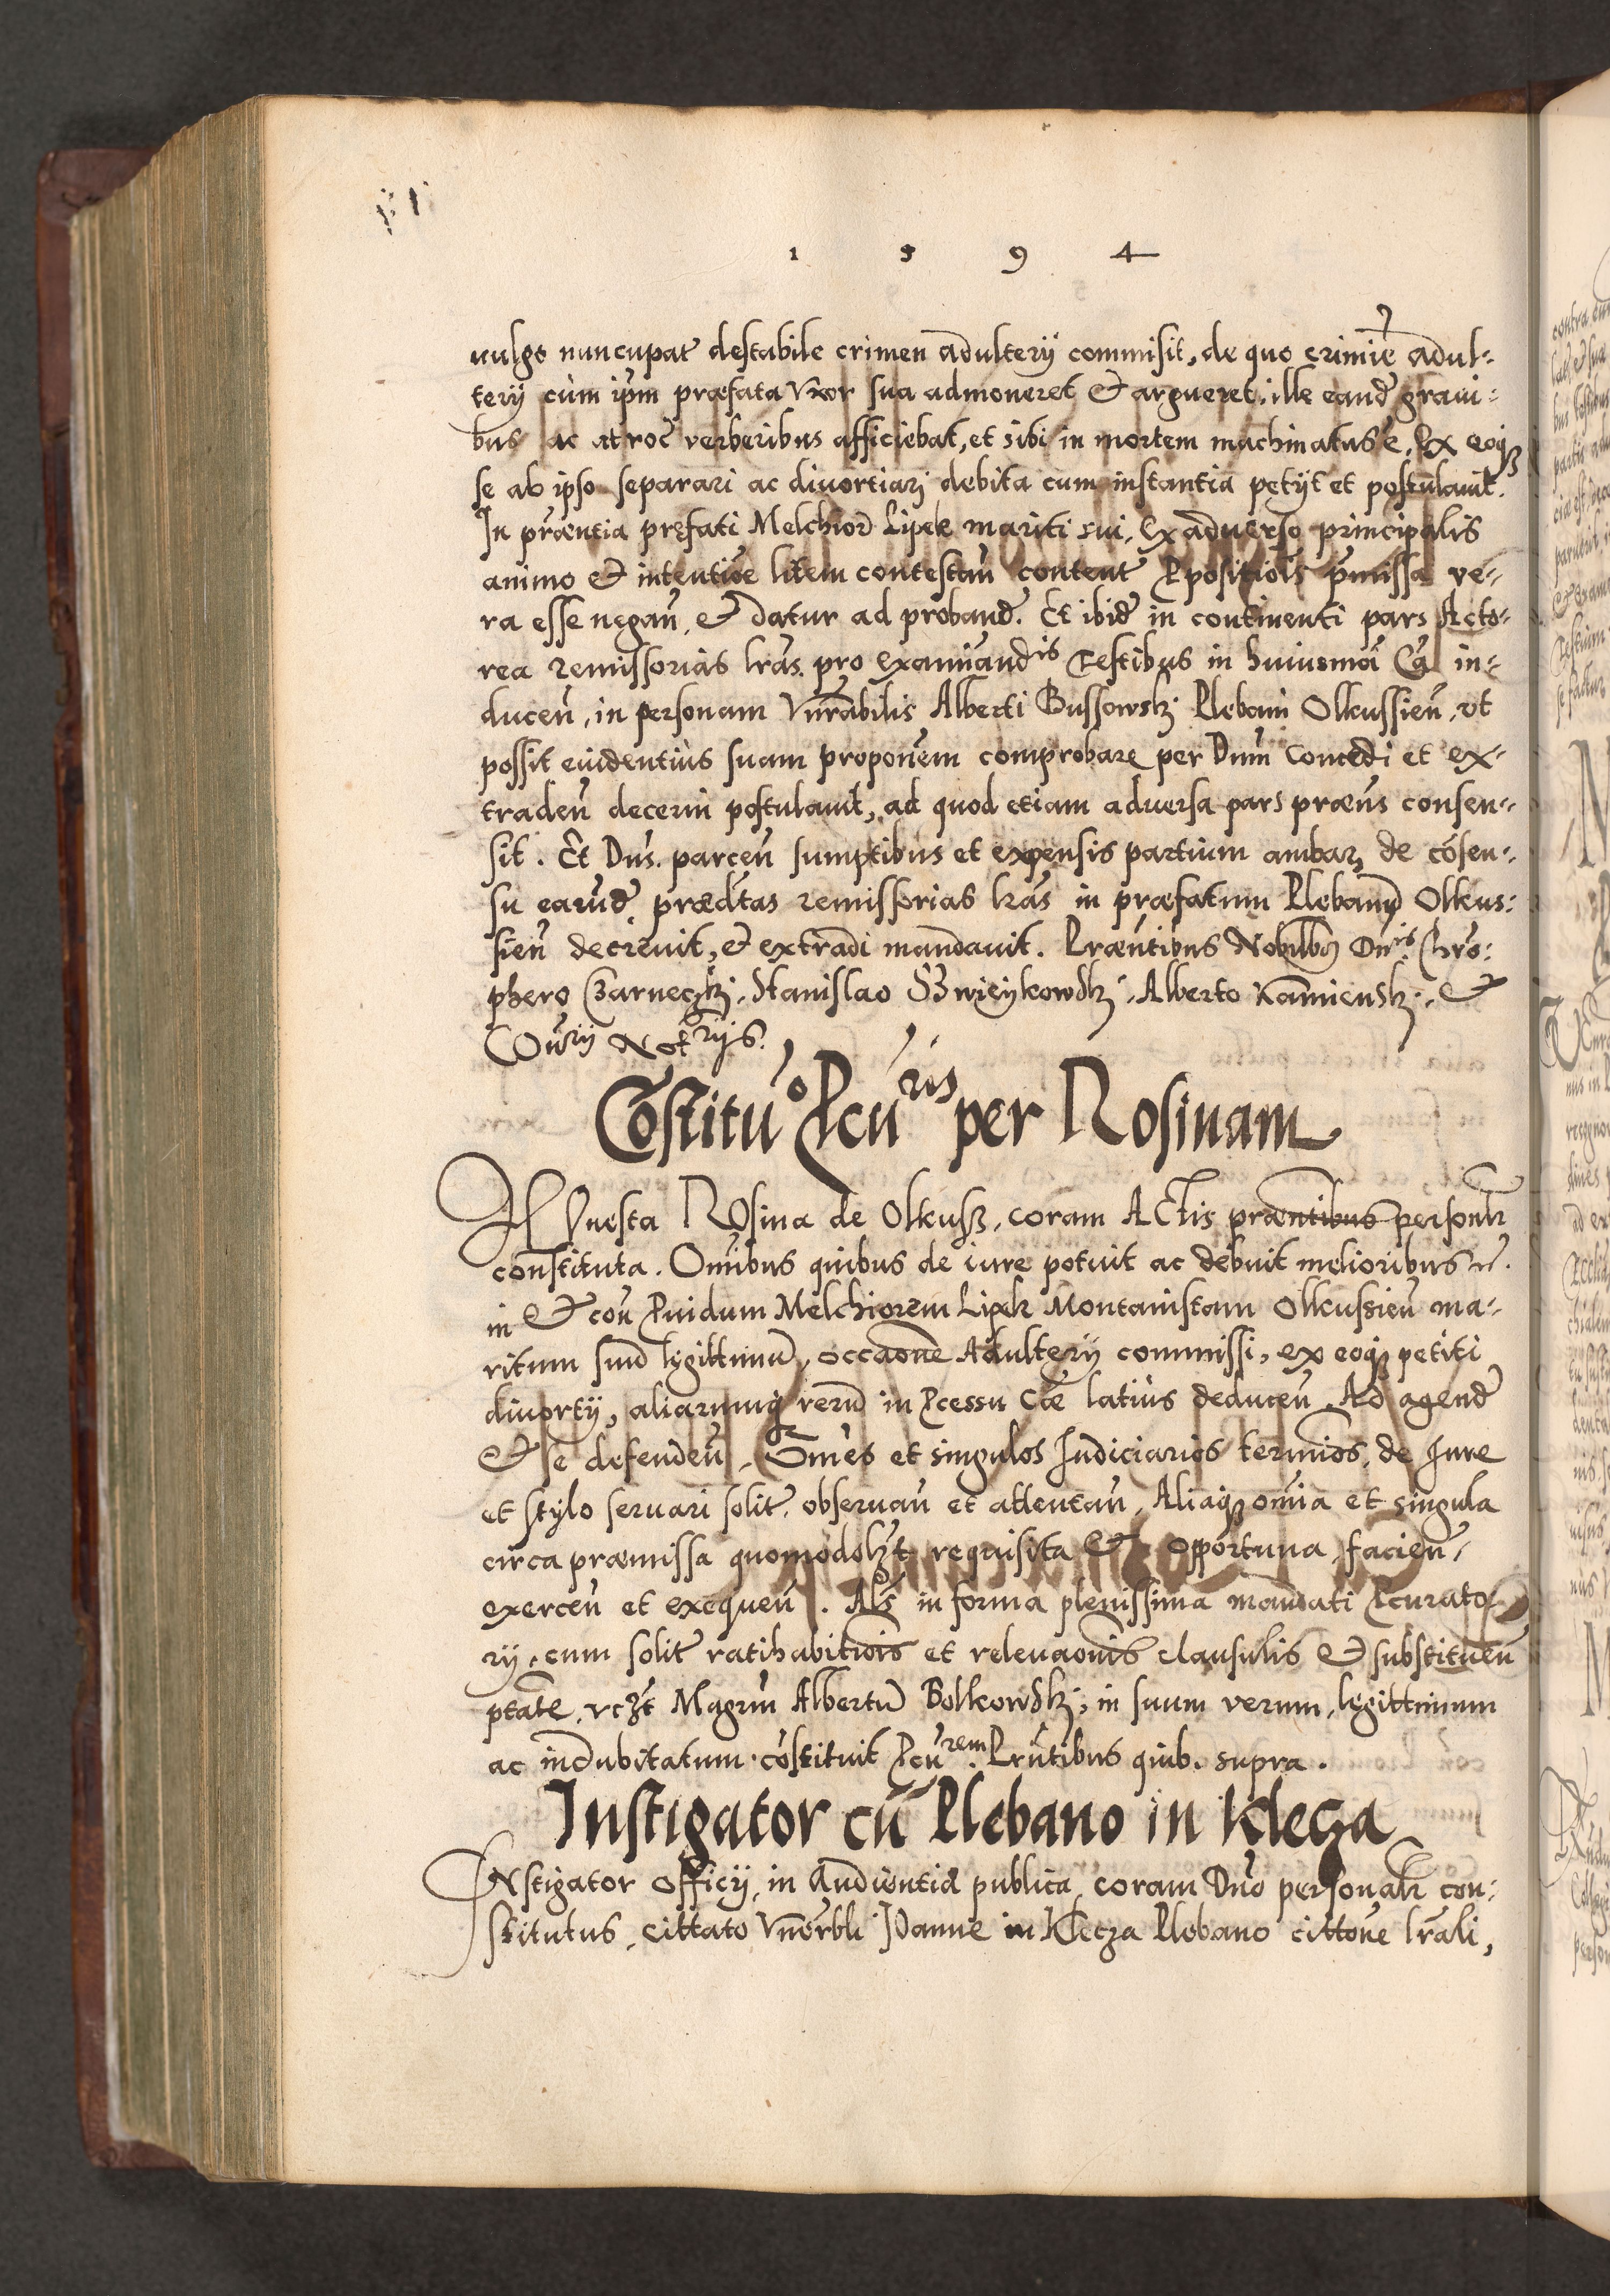 1 5 9 4
uulgo nuncupat destabile crimen adulterij commisit, de quo crimie adul-
terij cùm ipm præfata Vxor sua admoneret & argueret, ille eand graui-
bus ac atroc verberibus afficiebat, et sibi in mortem machinatus e. Ex eoqz
se ab ipso separari ac diuortiari debita cum instantia petijt et postulauit.
In præntia præfati Melchior Lipek mariti sui, Ex aduerso principalis
animo & intentioe litem contestan content Ppositiois pmissa ve-
ra esse negan, & datur ad proband. Et ibid in continenti pars Acto-
rea remissorias lras. pro examinandis testibus in huiusmoi Ca in-
ducen, in personam Vnrabilis Alberti Bussowskj Plebani Olkussien, vt
possit euidentiùs suam proponem comprobare per Dnm concedi et ex-
traden decerni postulauit, ad quod etiam aduersa pars præns consen-
sit. Et Dns. parcen sumptibus et expensis partium ambarz de cosen-
su earund, prædtas remissorias lras in præfatum Plebanu Olkus-
sien decreuit, & extradi mandauit. Præntibus Nobilibz Dnis Chro-
phero Czarneczkj, Stanislao Dzwieykowskj, Alberto Kamienskj, &
Courij Notrijs.
Costituo Pcuris per Rosinam
HOnesta Rosina de Olkusz, coram Actis præntibus personlr
constituta. Omibus quibus de iure potuit ac debuit melioribus etc.
in & con Puidum Melchiorem Lipek Montanistam Olkussien ma-
ritum suu legittimu, occaone Adulterij commissi, ex eoqz petiti
diuortij, aliarumqz reru in Pcessu Cæ latiùs deducen. Ad agend
& se defenden, Omes et singulos Iudiciarios termios, de Iure
et stylo seruari solit, obseruan et attentan, Aliaqz omia et singula
circa præmissa quomodolzt requisita & opportuna, facien,
exercen et exequen. Als in forma plenissima mandati Pcurato-
rij, cum solit ratihabitiois et releuaonis clausulis & substituen
ptate, vczt Magrm Albertu Bolkowskj, in suum verum, legittimum
ac indubitatum costituit Pcurem. Prntibus quib. supra.
Instigator cu Plebano in Klecza
INstigator officij, in Audientia publica, coram Dno personalr con-
stitutus, cittato Vnerbli Ioanne in Klecza Plebano cittone lrali,